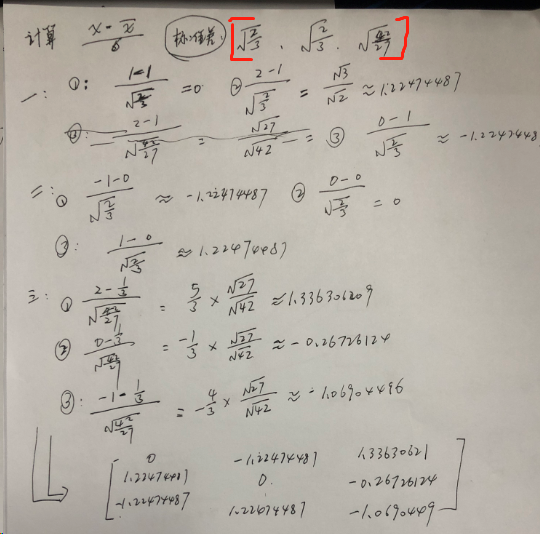 计算 (x - x̄)/σ 标准差 [√(2/3)、√(2/3)、√(42/27)]
一: ①: (1-1)/√(2/3) = 0 ② (2-1)/√(2/3) = √3/√2 ≈ 1.22474487
③: (2-1)/√(42/27) = √27/√42 = ③ (0-1)/√(2/3) ≈ -1.2247448
二: ① (-1-0)/√(2/3) ≈ -1.22474487 ② (0-0)/√(2/3) = 0
③: (1-0)/√(2/3) ≈ 1.22474487
三: ① (2-1/3)/√(42/27) = 5/3 × √27/√42 ≈ 1.33630609
② (0-1/3)/√(42/27) = -1/3 × √27/√42 ≈ -0.26726124
③: (-1-1/3)/√(42/27) = -4/3 × √27/√42 ≈ -1.06904496
0 -1.22474487 1.33630621
1.22474487 0. -0.26726124
-1.22474487 1.22474487 -1.0690449